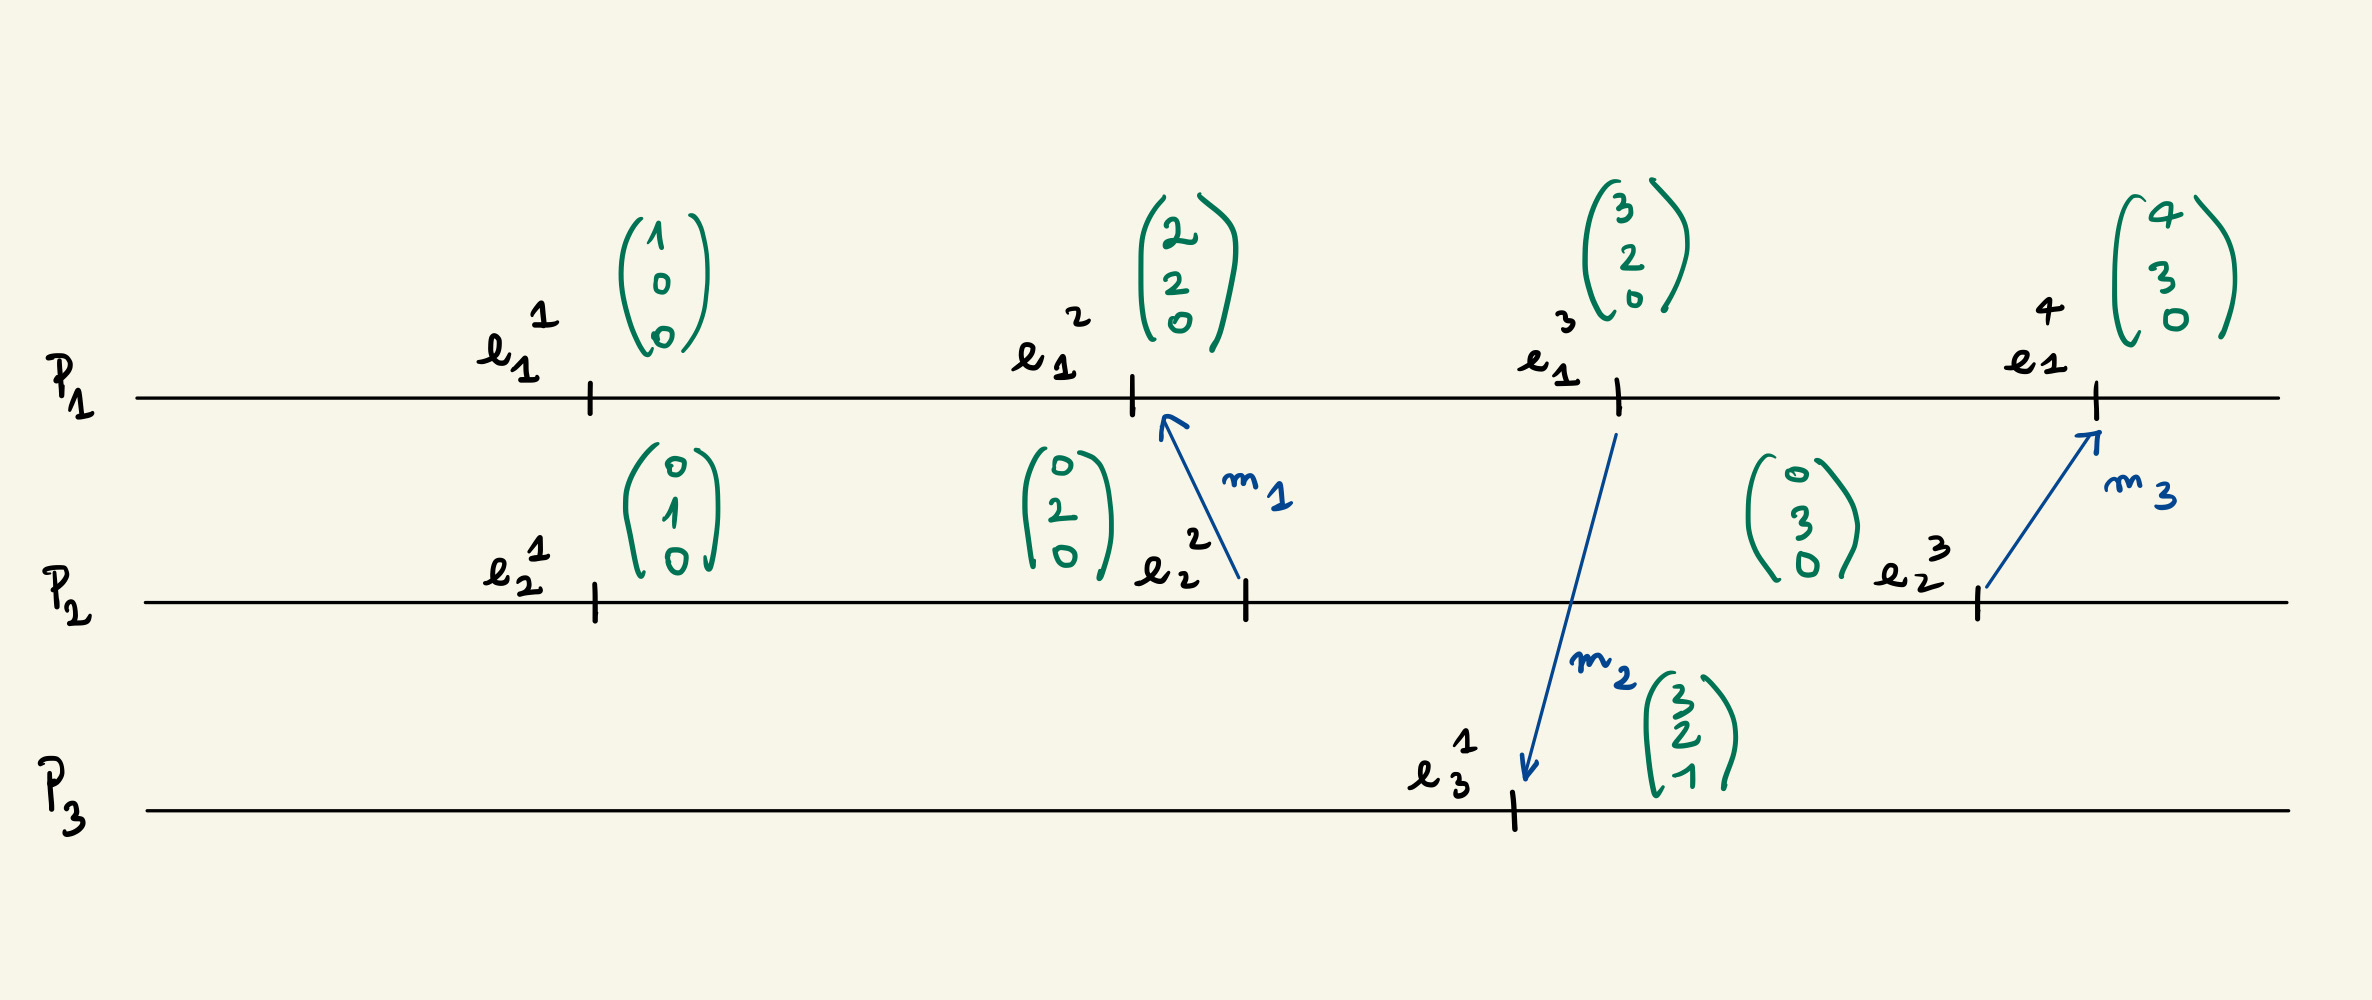 P₁ e₁¹ (1 0 0) e₁² (2 2 0) e₁³ (3 2 0) e₁⁴ (4 3 0)
m₁ m₃
P₂ e₂¹ (0 1 0) (0 2 0) e₂² (0 3 0) e₂³
m₂
P₃ e₃¹ (3 2 1)